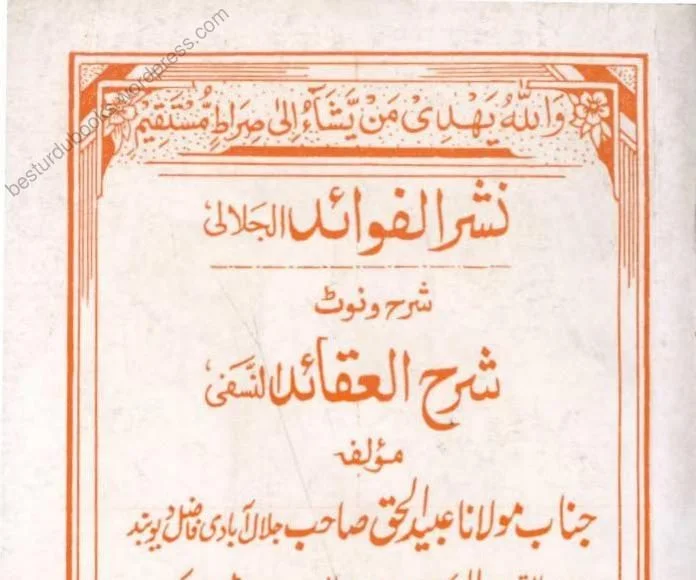 besturdubooks.wordpress.com
وَاللّٰهُ يَهْدِىْ مَنْ يَّشَآءُ اِلٰى صِرَاطٍ مُّسْتَقِيْمٍ
نشر الفوائد الجلالی
شرح و نوٹ
شرح العقائد النسفی
مؤلفہ
جناب مولانا عبید الحق صاحب جلال آبادی فاضل دیوبند